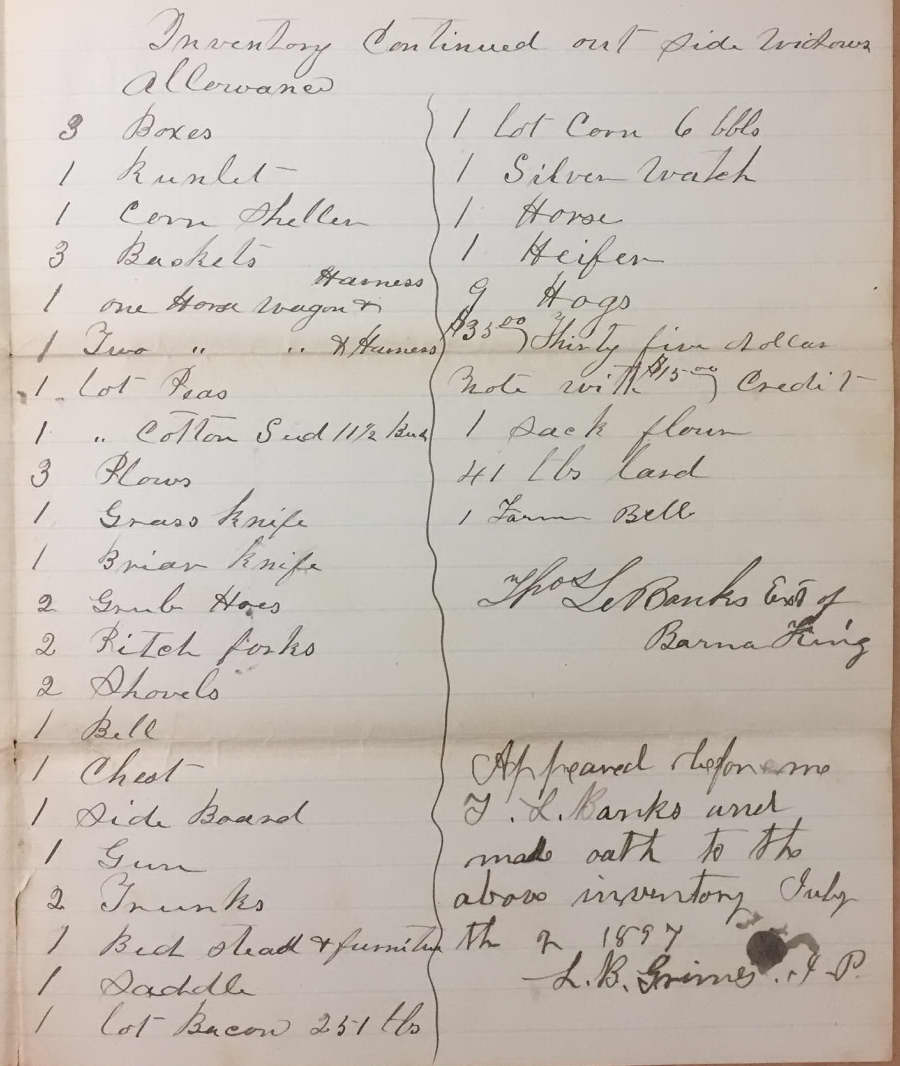 Inventory Continued out side Widows
Allowance
3 Boxes
1 Runlet
1 Corn Sheller
3 Baskets
1 one Horse Wagon & Harness
1 Two " " & Harness
1 lot Peas
1 " Cotton Seed 11½ Bush
3 Plows
1 Grass Knife
1 Briar Knife
2 Grub Hoes
2 Pitch forks
2 Shovels
1 Bell
1 Chest
1 Side Board
1 Gun
2 Trunks
1 Bed stead & furniture
1 Saddle
1 lot Bacon 251 lbs
1 lot Corn 6 bbls
1 Silver Watch
1 Horse
1 Heifer
9 Hogs
$35 00 Thirty five dollar
Note with $15 00 Credit
1 Sack flour
41 lbs lard
1 Farm Bell
Thos L Banks Ext of
Barna King
Appeared before me
T. L. Banks and
made oath to the
above inventory July
th 1897
L. B. Grimes. J. P.